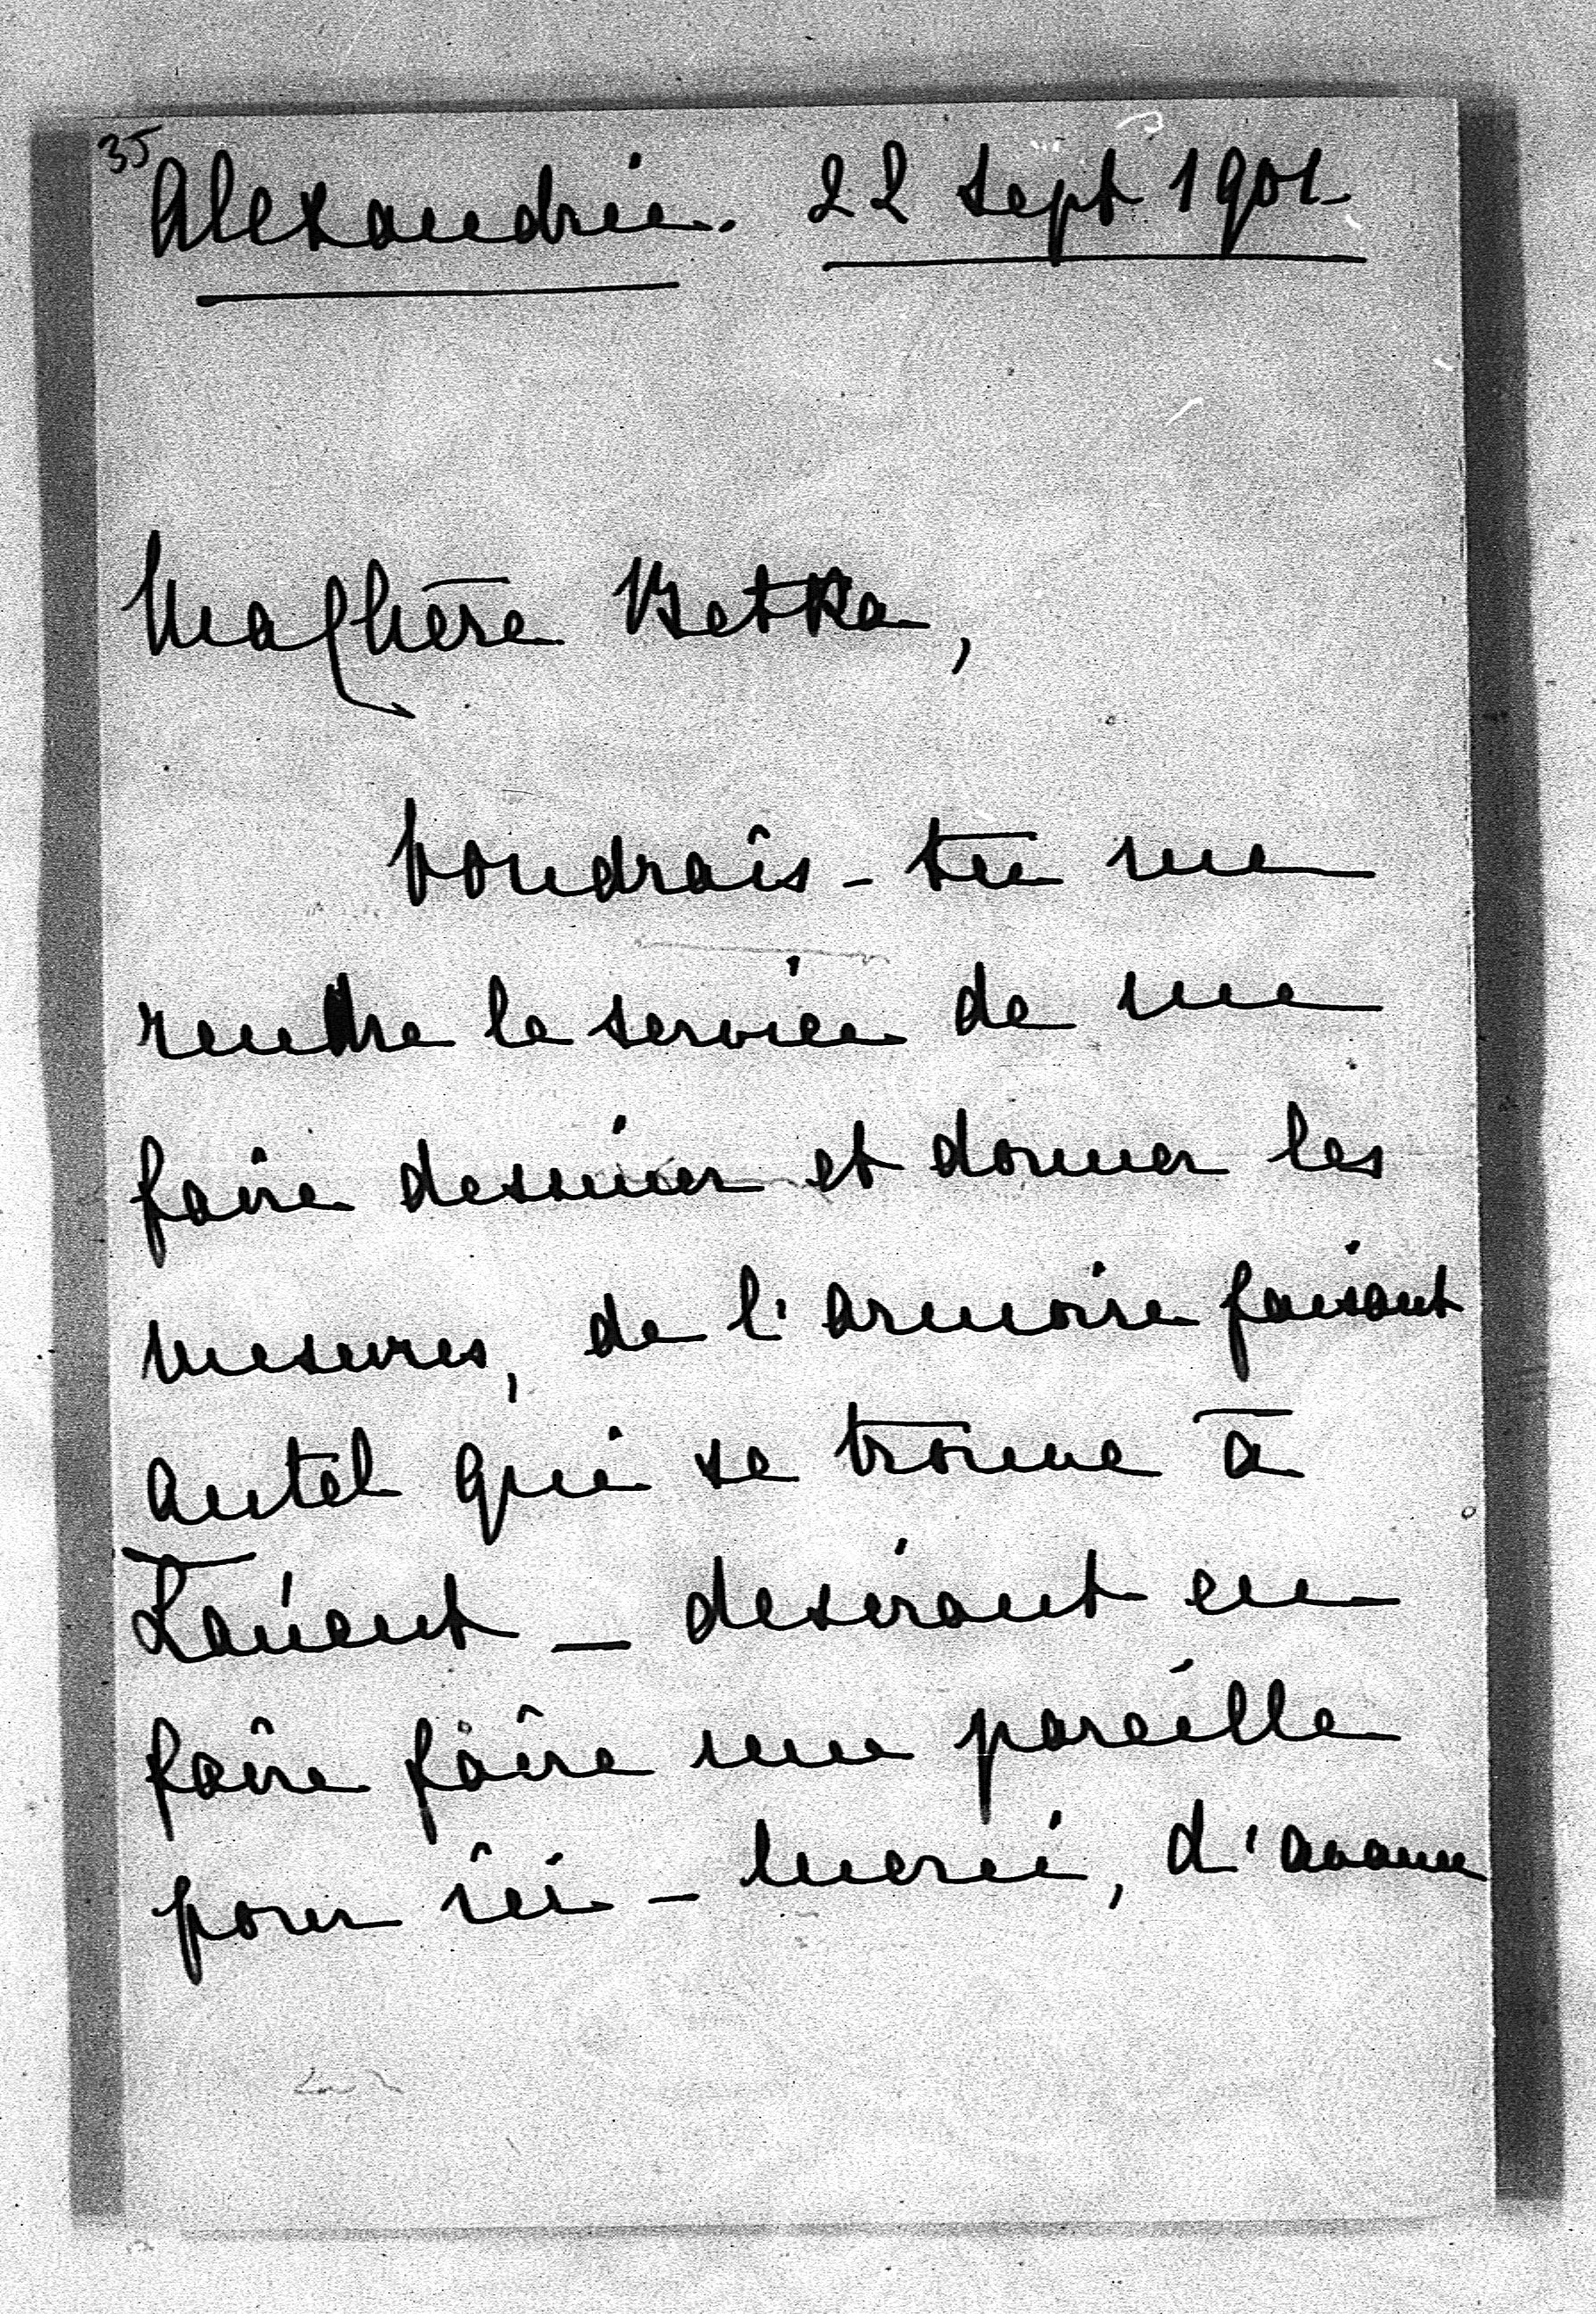 35
Alexandrie. 22 sept 1901
Ma chère Betka,
Voudrais-tu me
rendre le service de me
faire dessiner et donner les
mesures, de l'armoire faisant
autel qui se trouve à
– desirant en
faire faire une pareille
pour ici – merci, d'avance